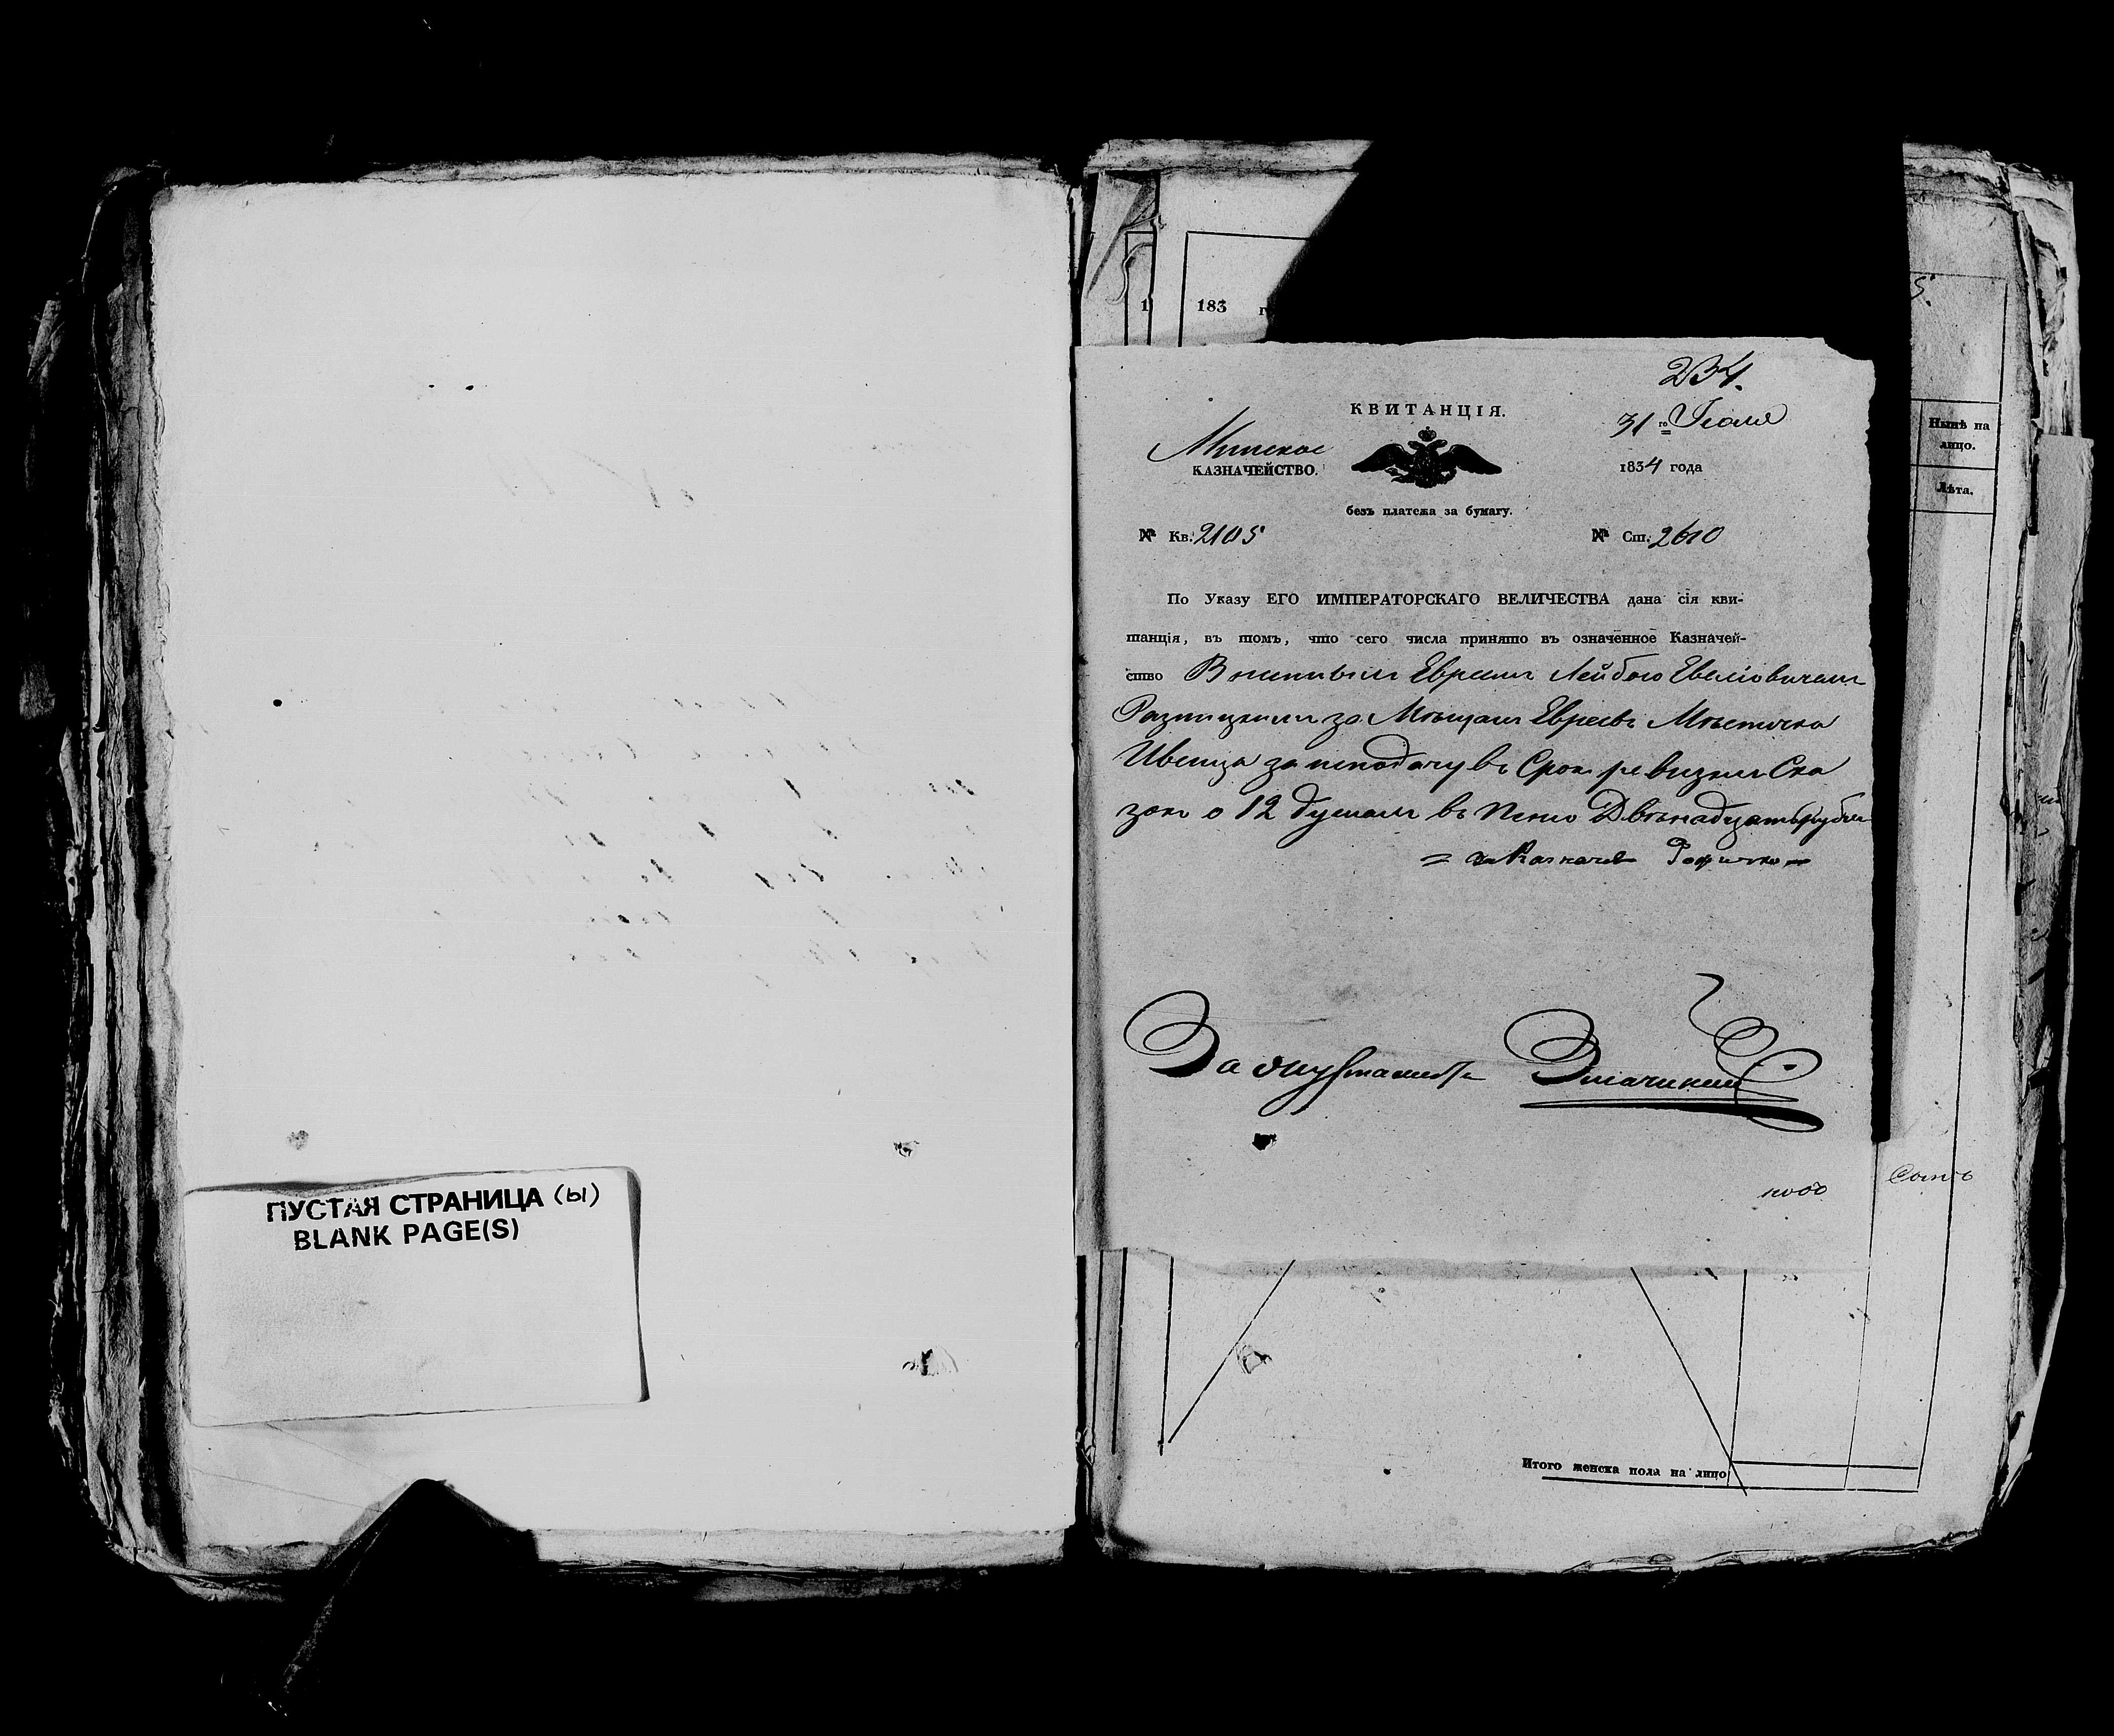 ПУСТАЯ СТРАНИЦА (Ы)
BLANK PAGE(S)
183 г
234.
КВИТАНЦІЯ.
Минское
КАЗНАЧЕЙСТВО.
31 го Іюля
1834 года
безъ платежа за бумагу.
№ Кв. 2105
№ Сш. 2610
По Указу ЕГО ИМПЕРАТОРСКАГО ВЕЛИЧЕСТВА дана сія кви-
шанція, въ шомъ, чшо сего числа приняшо въ означенное Казначей-
сшво Евреемъ Лейбою
за Мѣщанъ Евреевъ Мѣстечка
Ивенца за неподачу въ Срокъ ревизкихъ Ска
зокъ о 12 душахъ въ Пеню Двѣнадцать рубли
Казначей
За
Нынѣ на
лицо.
Лѣта.
Итого женска пола на лицо